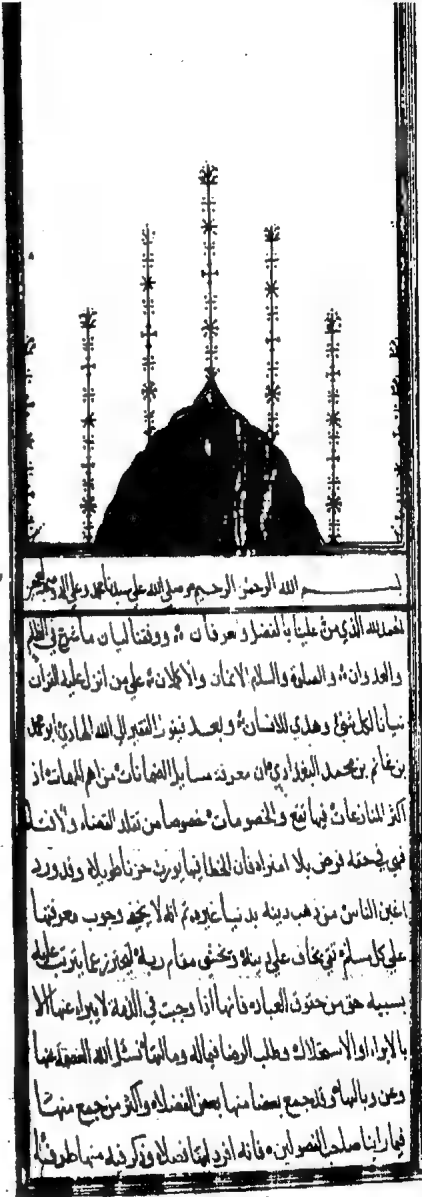 بسم الله الرحمن الرحيم وصلى الله على سيدنا محمد وعلى اله وصحبه
الحمد لله الذي من علينا بالفضل والعرفان ووفقنا لبيان ما غرق في الظلم
والعدوان والصلوة والسلام الاتمان والاكملان على من انزل عليه القران
تبيانا لكل شئ وهدي للانسان وبعد فيقول الفقير الى الله الهادي ابو محمد
بن غانم بن محمد البغدادي ان معرفة مسايل الضمانات من اهم المهمات اذ
اكثر المنازعات فيها تقع والخصومات خصوصا من تقلد القضاء والافتاء
فهي في حقه فرض بلا امتراء فان الخطا فيها يورث حزنا طويلا وقد ورد
اغبن الناس من ذهب دينه بدنيا غيره ثم انه لا يخفى وجوب معرفتها
على كل مسلم تقي يخاف على دينه ويخشى مقام ربه ليحترز عما يترتب عليه
بسببه حق من حقوق العباد فانها اذا وجبت في الذمة لا يبراء عنها الا
بالابراء او الاستحلال وطلب الرضا فيماله ومالها نسئل الله العفو عنها
وعن وبالها وقد جمع بعضا منها بعض الفضلاء واكثر من جمع منها
فيما راينا صاحب الفصولين فانه افرد لها فصلا وذكر فيه منها طرفا